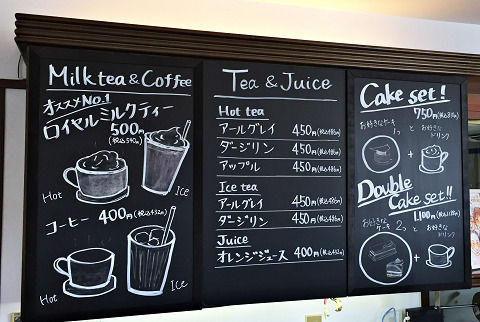 Milk tea & Coffee
オススメNo.1
ロイヤルミルクティー
500円
(税込540円)
Hot
Ice
コーヒー 400円(税込432円)
Hot
Ice
Tea & Juice
Hot tea
アールグレイ 450円(税込486円)
ダージリン 450円(税込486円)
アップル 450円(税込486円)
Ice tea
アールグレイ 450円(税込486円)
ダージリン 450円(税込486円)
Juice
オレンジジュース 400円(税込432円)
Cake set!
750円
お好きなケーキ 1つ と お好きなドリンク
+
Double
Cake set!!
1,100円
お好きなケーキ 2つ と お好きなドリンク
+